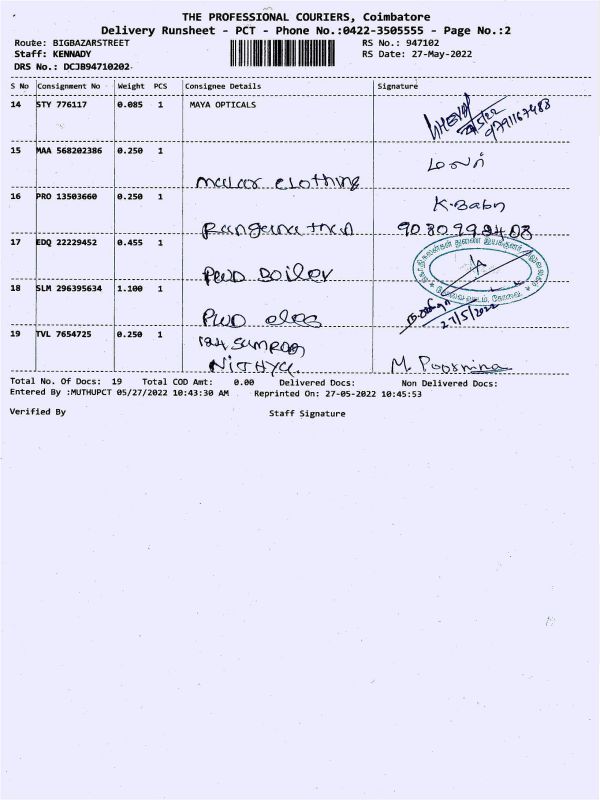 THE PROFESSIONAL COURIERS, Coimbatore
Delivery Runsheet - PCT - Phone No.:0422-3505555 - Page No.:2
Route: BIGBAZARSTREET RS No.: 947102
Staff: KENNADY RS Date: 27-May-2022
DRS No.: DCJB94710202
S No Consignment No Weight PCS Consignee Details Signature
14 STY 776117 0.085 1 MAYA OPTICALS
9791167483
15 MAA 568202386 0.250 1 மலர்
malar clothing
16 PRO 13503660 0.250 1 K.Babu
Ranganathan
17 EDQ 22229452 0.455 1
PWD Boiler
18 SLM 296395634 1.100 1
PWD elec 27/5/2022
19 TVL 7654725 0.250 1
Nithya M. Poornima
Total No. Of Docs: 19 Total COD Amt: 0.00 Delivered Docs: Non Delivered Docs:
Entered By :MUTHUPCT 05/27/2022 10:43:30 AM Reprinted On: 27-05-2022 10:45:53
Verified By Staff Signature